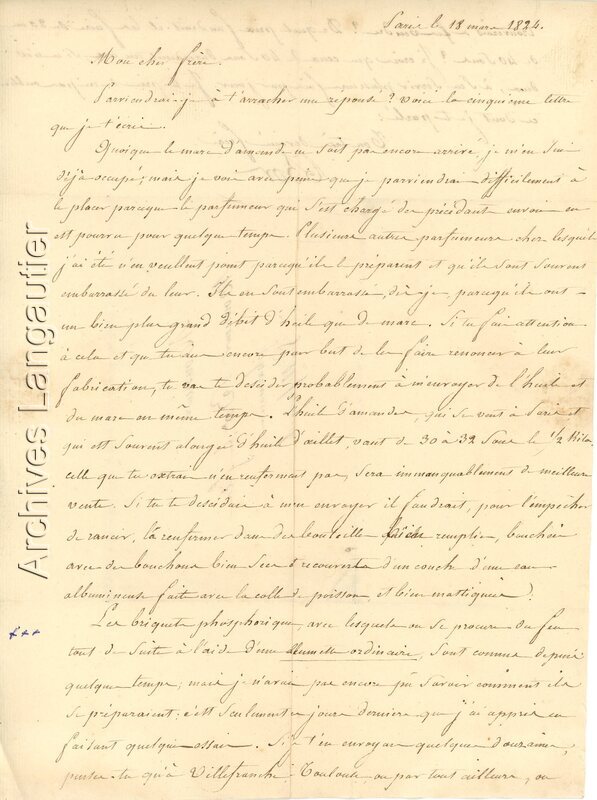 Paris le 18 mars 1824.
Mon cher frère.
Parviendrai-je à t'arracher une réponse? voici la cinquième lettre
que je t'écris.
Quoique le marc d'amande ne soit pas encore arrivé je m'en suis
déjà occupé; mais je vois avec peine que je parviendrai difficilement à
le placer parceque le parfumeur qui s'est chargé du précédant envoi en
est pourvu pour quelque temps. Plusieurs autres parfumeurs chez lesquels
j'ai été n'en veullent point parcequ'ils le préparent et qu'ils sont souvent
embarrassé du leur. Ils en sont embarrassé, dis-je, parcequ'ils ont
un bien plus grand débit d'huile que de marc. Si tu fais attention
à cela et que tu aies encore pour but de les faire renoncer à leur
fabrication, tu vas te décider probablement à m'envoyer de l'huile et
du marc en même temps. L'huile d'amandes, qui se vent à Paris et
qui est souvent alongée d'huile d'œillet, vaut de 30 à 32 sous le 1/2 kilo.
celle que tu extrais n'en renfermant pas, sera immanquablement de meilleure
vente. Si tu te décidais à m'en envoyer il faudrait, pour l'empêcher
de rancir, la renfermer dans des bouteilles bien remplies, bouchées
avec des bouchons bien secs & recouverts d'un couche d'une eau
albumineuse faite avec la colle de poisson et bien mastiquées.
Les briquets phosphoriques, avec lesquels on se procure du feu
tout de suite à l'aide d'une allumette ordinaire, sont connus depuis
quelque temps; mais je n'avais pas encore pû savoir comment ils
se préparaient: c'est seulement ces jours derniers que j'ai appris en
faisant quelques essais. Si je t'en envoyais quelques douzaines,
penses-tu qu'à Villefranche Toulouse, ou par tout ailleurs, on
Archives Langautier